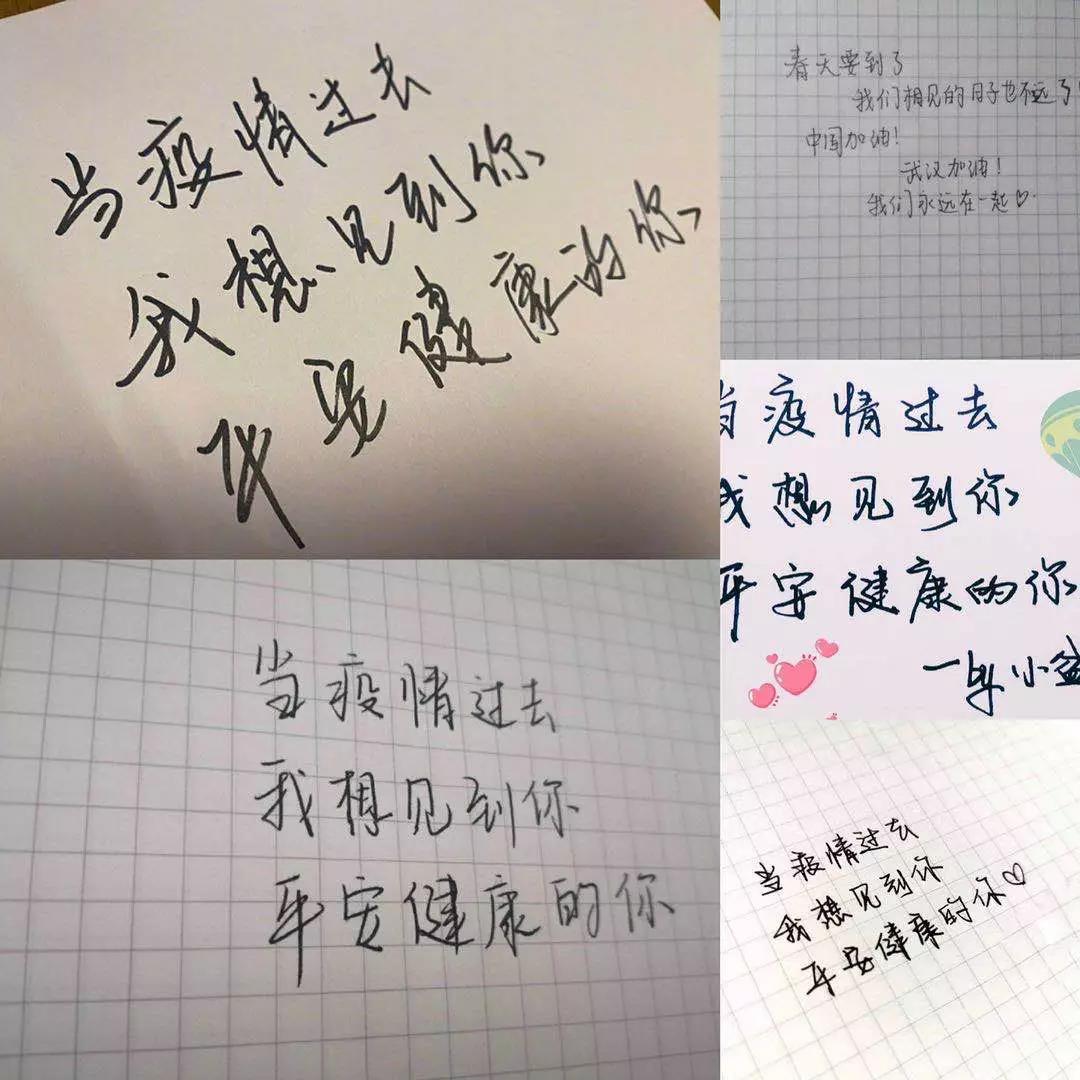 当疫情过去
我想见到你
平安健康的你
春天要到了
我们相见的日子也不远了!
中国加油!
武汉加油!
我们永远在一起♡
当疫情过去
我想见到你
平安健康的你
—by小盆
当疫情过去
我想见到你
平安健康的你
当疫情过去
我想见到你
平安健康的你♡